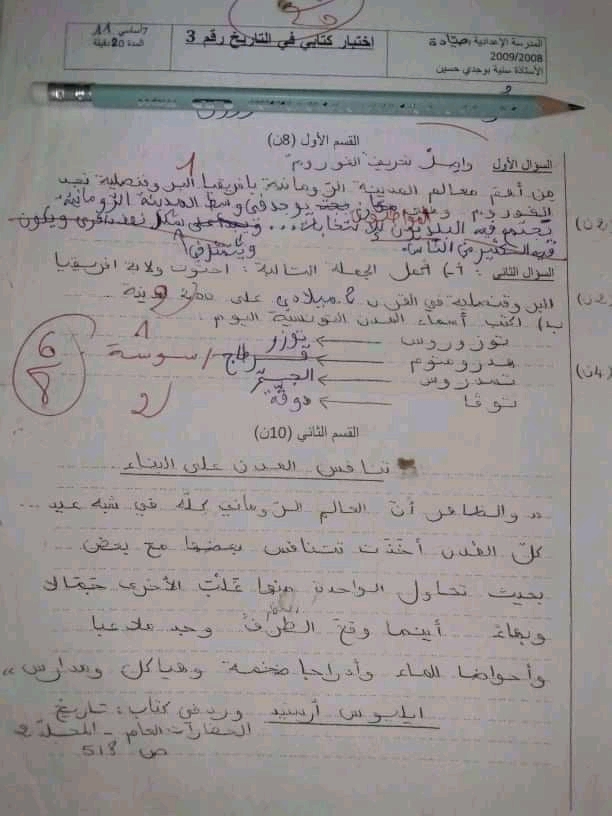 المدرسة الإعدادية : صيادة
2009/2008
الأستاذة سنية بوجدي حسين
إختبار كتابي في التاريخ رقم 3
7أساسي 11
المدة 20 دقيقة
القسم الأول (8ن)
السؤال الأول واصل تعريف الفوروم
1
من أهم معالم المدينة الرومانية بإفريقيا البروقنصلية نجد
الفوروم يوجد في وسط المدينة الرومانية
السؤال الثاني : أ) أكمل الجملة التالية : احتوت ولاية افريقيا
البروقنصلية في القرن 2 ميلادي على 200 مدينة
ب) اكتب أسماء المدن التونسية اليوم .
توزوروس ← توزر
هدرومتوم ← قرطاج / سوسة
تسدروس ← الجم
توقا ← دوقة
(4ن)
6
8
2
القسم الثاني (10ن)
تنافس المدن على البناء
" والظاهر أن العالم الروماني كله في شبه عيد ...
كل المدن أخذت تتنافس بعضها مع بعض
بحيث تحاول الواحدة منها غلب الأخرى جمالا
وبهاء أينما وقع الطرف وجد ملاعبا
وأحواضا الماء وأدراجا ضخمة وهياكل ومدارس "
ايليوس أرستيد ورد في كتاب : تاريخ
الحضارات العام - المجلد 2
ص 518